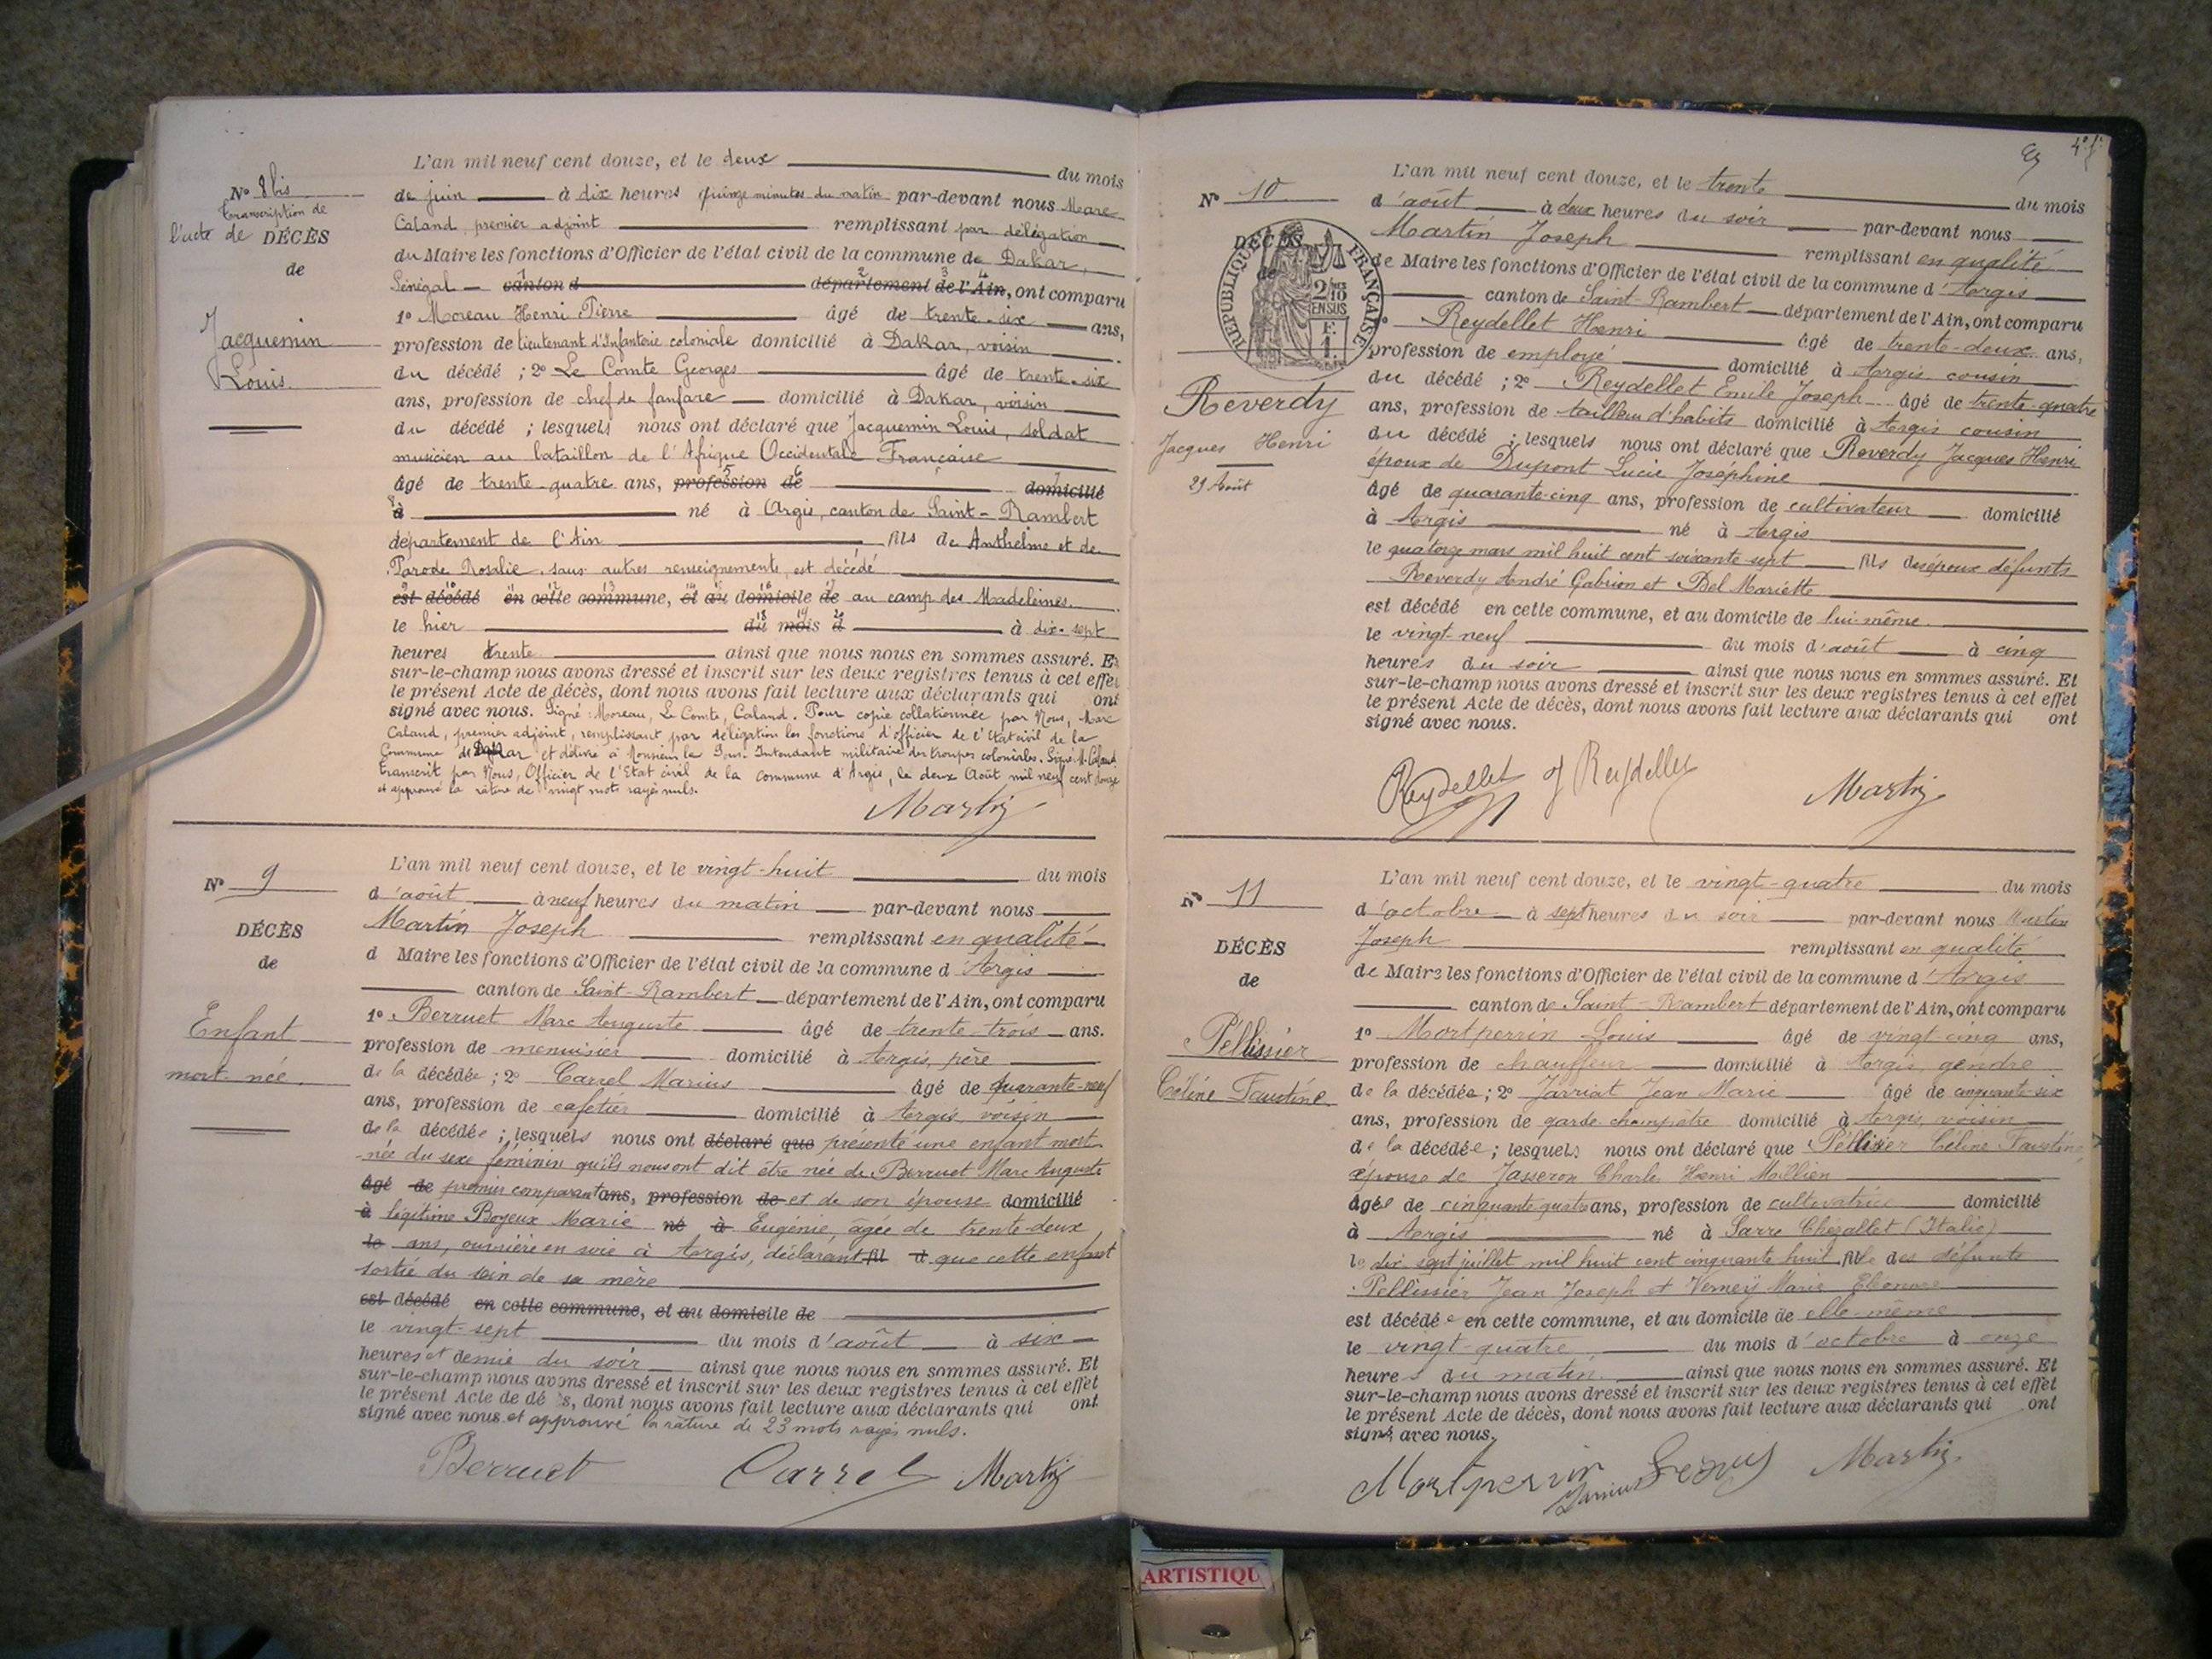 L'an mil neuf cent douze, et le deux du mois
No 8 bis
transcription de
l'acte de DÉCÈS
de
Jacquemin
Louis
de juin à dix heures quinze minutes du matin par-devant nous Marc
Caland, premier adjoint remplissant par délégation
du Maire les fonctions d'Officier de l'état civil de la commune de Dakar,
Sénégal canton d département de l'Ain, ont comparu
1º Moreau Henri Pierre âgé de trente-six ans,
profession de lieutenant d'Infanterie coloniale domicilié à Dakar, voisin
du décédé ; 2º Le Comte Georges âgé de trente-six
ans, profession de chef de fanfare domicilié à Dakar, voisin
du décédé ; lesquels nous ont déclaré que Jacquemin Louis, soldat
musicien au bataillon de l'Afrique Occidentale Française
âgé de trente-quatre ans, profession de domicilié
à né à Argis, canton de Saint-Rambert
département de l'Ain fils de Anthelme et de
Parode Rosalie, sans autres renseignements, est décédé
est décédé en cette commune, et au domicile de au camp des Madeleines.
le hier du mois d à dix-sept
heures trente ainsi que nous nous en sommes assuré. Et
sur-le-champ nous avons dressé et inscrit sur les deux registres tenus à cet effet
le présent Acte de décès, dont nous avons fait lecture aux déclarants qui ont
signé avec nous. Signé : Moreau, Le Comte, Caland. Pour copie collationnée par Nous, Marc
Caland, premier adjoint, remplissant par délégation les fonctions d'officier de l'Etat civil de la
Commune de Dakar et délivré à Monsieur le Sous-Intendant militaire des troupes coloniales. Signé M. Caland
transcrit par Nous, Officier de l'Etat civil de la commune d'Argis, le deux Août mil neuf cent douze
et approuvé la râture de vingt mots rayés nuls.
Martin
L'an mil neuf cent douze, et le vingt-huit du mois
No 9
DÉCÈS
de
Enfant
mort-née.
d'août à neuf heures du matin par-devant nous
Martin Joseph remplissant en qualité
d Maire les fonctions d'Officier de l'état civil de la commune d'Argis
canton de Saint-Rambert département de l'Ain, ont comparu
1º Berruet Marc Auguste âgé de trente-trois ans.
profession de menuisier domicilié à Argis, père
de la décédée ; 2º Carrel Marius âgé de quarante-neuf
ans, profession de cafetier domicilié à Argis, voisin
de la décédée ; lesquels nous ont déclaré que présenté une enfant mort-
née du sexe féminin qu'ils nous ont dit être née de Berruet Marc Auguste
âgé de premier comparant ans, profession de et de son épouse domicilié
à légitime Boyeux Marie né à Eugénie, âgée de trente-deux
le ans, ouvrière en soie à Argis, déclarant fil d que cette enfant
sortie du sein de sa mère
est décédé en cette commune, et au domicile de
le vingt-sept du mois d'août à six
heures et demie du soir ainsi que nous nous en sommes assuré. Et
sur-le-champ nous avons dressé et inscrit sur les deux registres tenus à cet effet
le présent Acte de dé s, dont nous avons fait lecture aux déclarants qui ont
signé avec nous et approuvé la râture de 23 mots rayés nuls.
Berruet Carrel Martin
L'an mil neuf cent douze, et le trente du mois
No 10
DÉCÈS
de
RÉPUBLIQUE FRANÇAISE
2/10 EN SUS
F. 1.
Reverdy
Jacques Henri
29 Août
d'août à deux heures du soir par-devant nous
Martin Joseph remplissant en qualité
de Maire les fonctions d'Officier de l'état civil de la commune d'Argis
canton de Saint-Rambert département de l'Ain, ont comparu
Reydellet Henri âgé de trente-deux ans,
profession de employé domicilié à Argis cousin
du décédé ; 2º Reydellet Emile Joseph âgé de trente-quatre
ans, profession de tailleur d'habits domicilié à Argis cousin
du décédé ; lesquels nous ont déclaré que Reverdy Jacques Henri
époux de Dupont Lucie Joséphine
âgé de quarante-cinq ans, profession de cultivateur domicilié
à Argis né à Argis
le quatorze mars mil huit cent soixante-sept fils des époux défunts
Reverdy André Gabrion et Bel Mariette
est décédé en cette commune, et au domicile de lui-même.
le vingt-neuf du mois d'août à cinq
heures du soir ainsi que nous nous en sommes assuré. Et
sur-le-champ nous avons dressé et inscrit sur les deux registres tenus à cet effet
le présent Acte de décès, dont nous avons fait lecture aux déclarants qui ont
signé avec nous.
Reydellet Reydellet Martin
L'an mil neuf cent douze, et le vingt-quatre du mois
No 11
DÉCÈS
de
Péllissier
Céline Faustine
d'octobre à sept heures du soir par-devant nous Martin
Joseph remplissant en qualité
de Maire les fonctions d'Officier de l'état civil de la commune d'Argis
canton de Saint-Rambert département de l'Ain, ont comparu
1º Mortperrin Louis âgé de vingt-cinq ans,
profession de chauffeur domicilié à Argis, gendre
de la décédée ; 2º Jarriat Jean Marie âgé de cinquante-six
ans, profession de garde champêtre domicilié à Argis, voisin
de la décédée ; lesquels nous ont déclaré que Péllisier Céline Faustine
épouse de Jasseron Charle Henri Maillien
âgée de cinquante-quatre ans, profession de cultivatrice domicilié
à Argis né à Sarre Chezallet (Italie)
le dix-sept juillet mil huit cent cinquante huit, fille des défunts
Pellissier Jean Joseph et Verneÿ Marie Eléonore
est décédée en cette commune, et au domicile de elle-même
le vingt-quatre du mois d'octobre à onze
heures du matin ainsi que nous nous en sommes assuré. Et
sur-le-champ nous avons dressé et inscrit sur les deux registres tenus à cet effet
le présent Acte de décès, dont nous avons fait lecture aux déclarants qui ont
signé avec nous.
Mortperrin Martin
ARTISTIQU